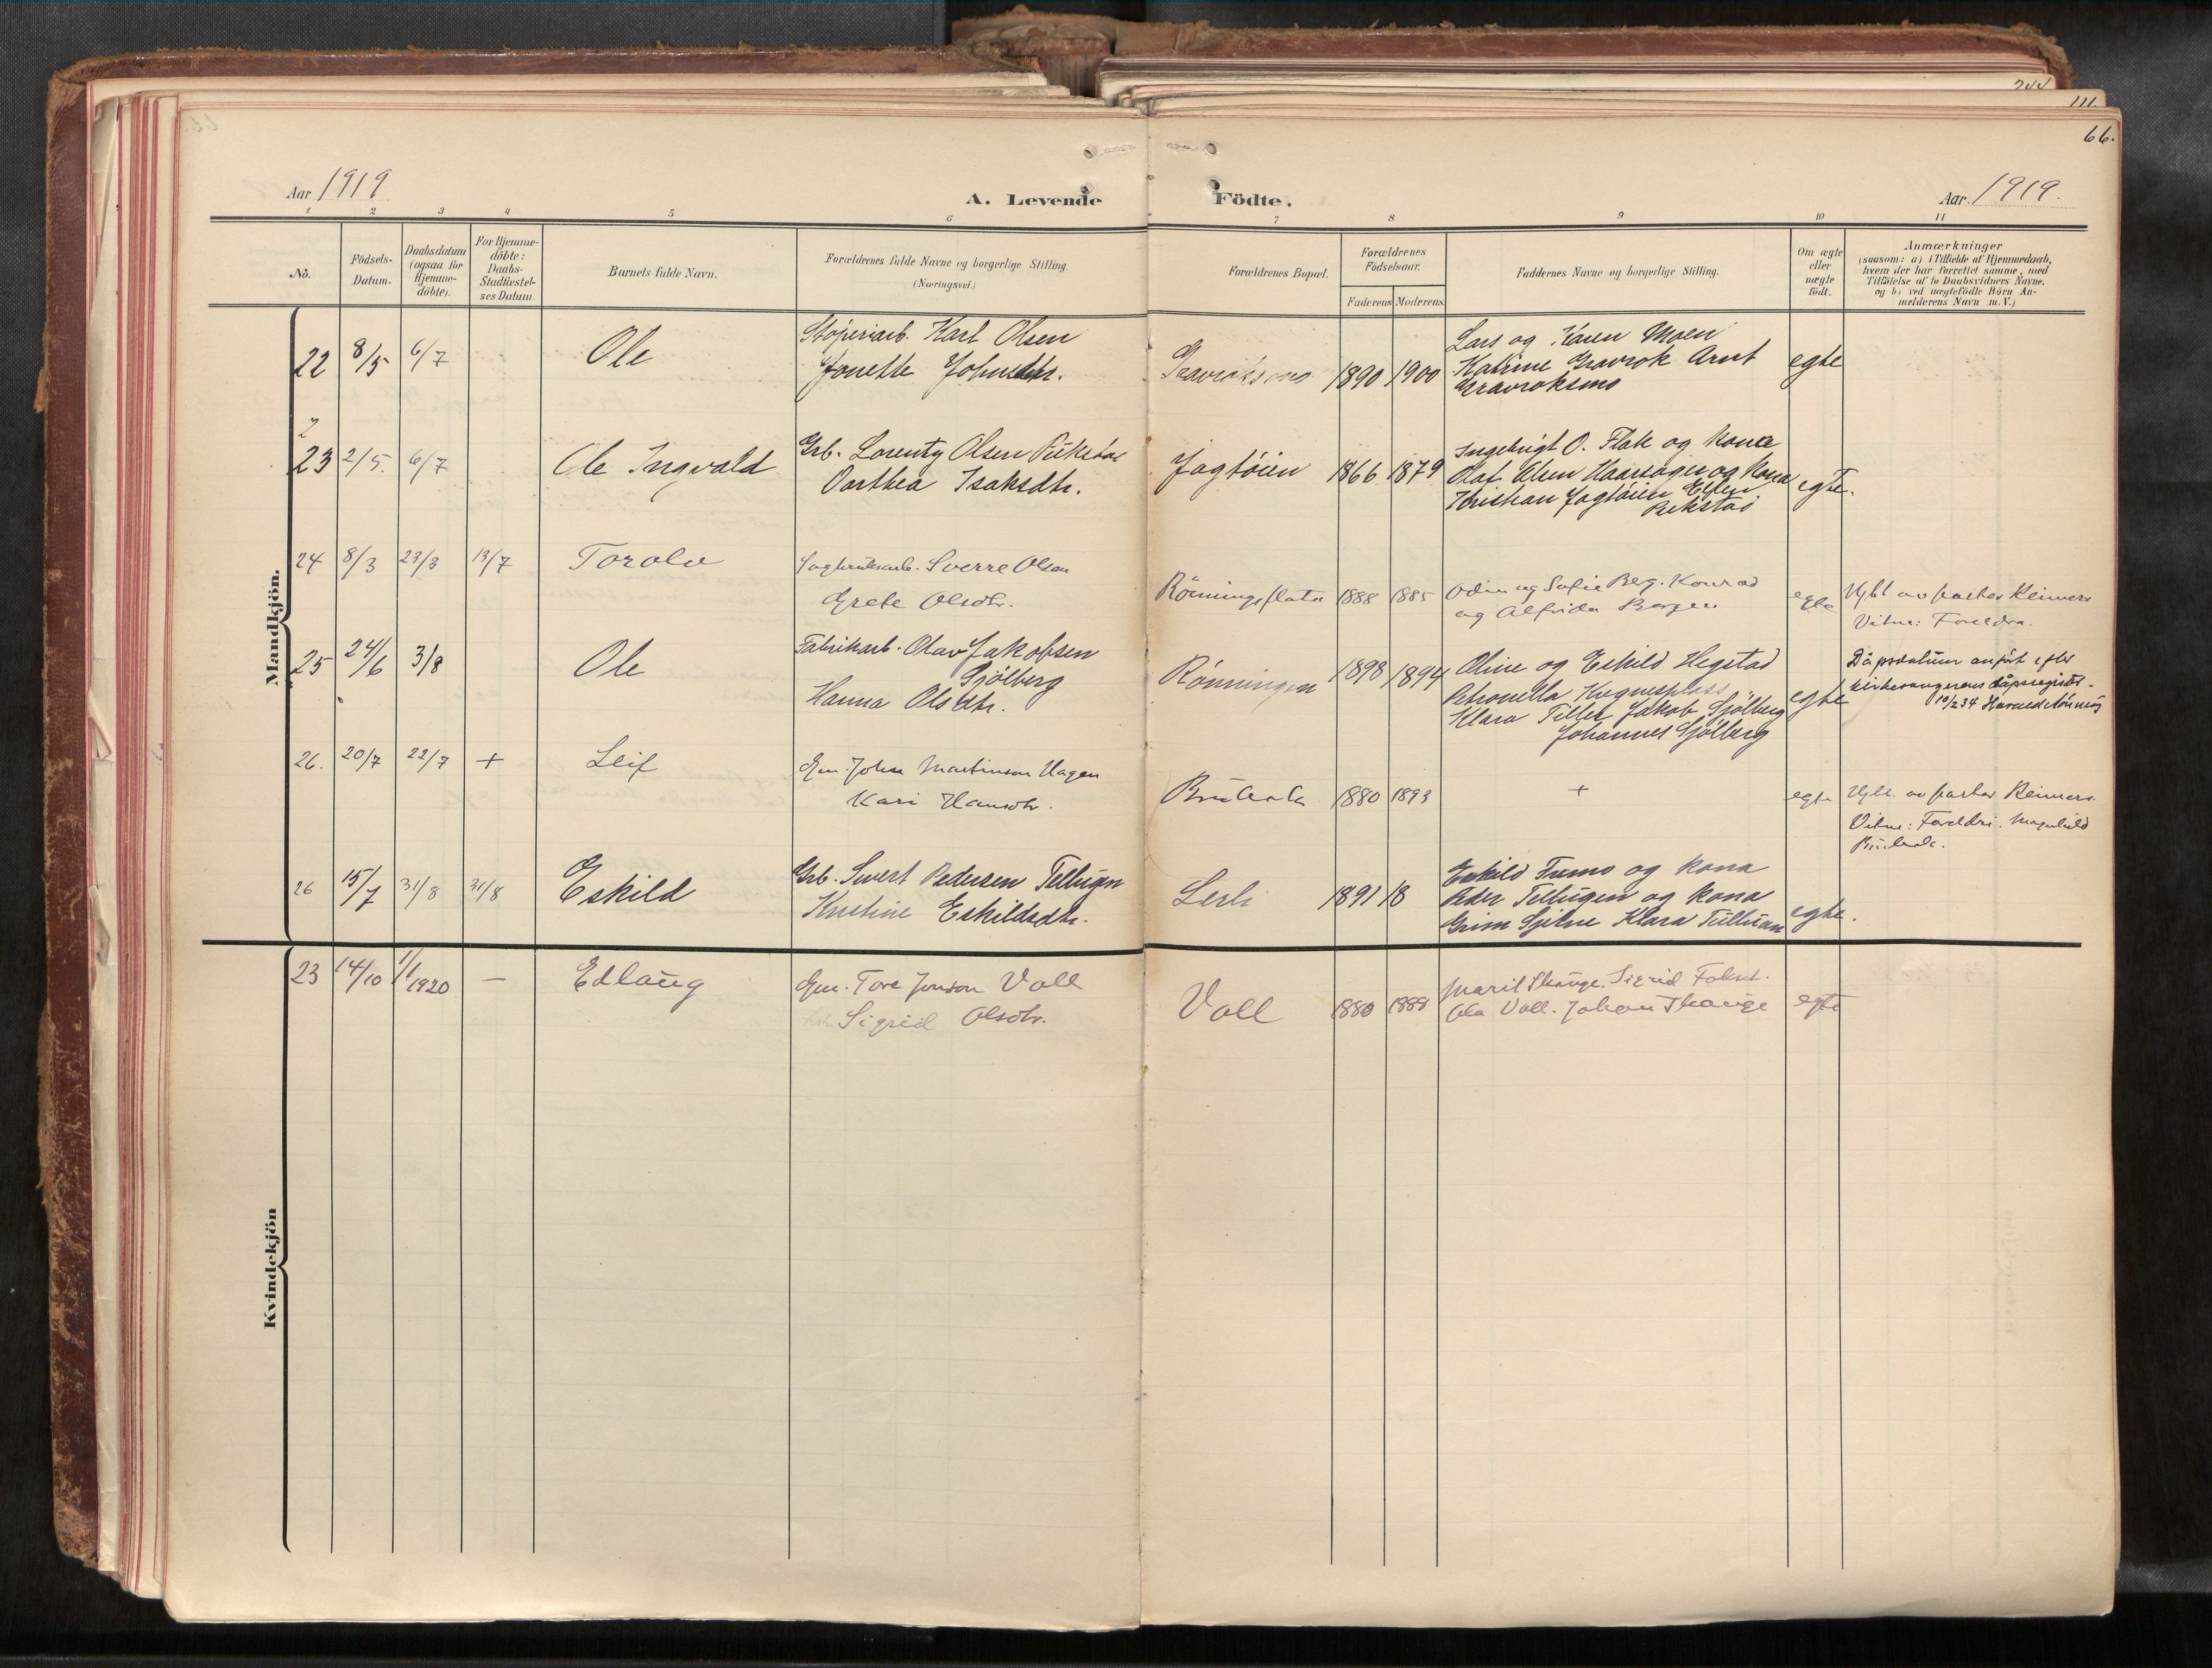 244
111.
66.
Aar 1919
A. Levende Födte.
Aar. 1919.
1 2 3 4 5 6 7 8 9 10 11
No.
Födsels-
Datum.
Daabsdatum
(ogsaa for
Hjemme-
döbte).
For Hjemme-
döbte:
Daabs-
Stadfæstel-
ses Datum.
Barnets fulde Navn.
Forældrenes fulde Navne og borgerlige Stilling
(Næringsvei.)
Forældrenes Bopæl.
Forældrenes
Födselsaar.
Faderens Moderens
Faddernes Navne og borgerlige Stilling.
Om ægte
eller
uægte
födt.
Anmærkninger
(saasom: a) i Tilfælde af Hjemmedaab,
hvem der har forrettet samme, med
Tilföielse af to Daabsvidners Navne,
og b) ved uægtefödte Börn An-
melderens Navn m. V.)
Mandkjön.
22 8/5 6/7 Ole
Støperiarb. Karl Olsen
Jonette Johnsdtr.
Gravroksmo 1890 1900
Lars og Karen Moen
Katrine Gravrok Arnt
Gravroksmo
egte
23 2/5. 6/7 Ole Ingvald
Grb. Lorentz Olsen
Dorthea Isaksdtr.
Jagtöien 1866 1879
Ingebrigt O. Flak og kona
Olaf Olsen og kona
Kristian Jagtöien
egte.
24 8/3 23/3 13/7 Torolv
Sagbruksarb. Sverre Olsen
Grete Olsdtr.
Rönningsflata 1888 1885
Odin og Sofie Berg. Konrad
og Alfrida
egte
Hjd. av pastor Reimers
Vitne: Foreldra.
25 24/6 3/8 Ole
Fabrikarb. Olav Jakobsen
Sjölberg
Hanna Olsdtr.
Rönningen 1898 1894
Oline og Eskild Hegstad
Petronella
Klara Tiller Jakob Sjölberg
Johannes Sjölberg
egte
Dåpsdatum anfört efter
kirkesangerens dåpsregister
26. 20/7 22/7 + Leif
Gm. John Martinson Hagen
Kari Hansdtr.
1880 1893
+
egte
Hjd. av pastor Reimers.
Vitne: Foreldri. Magnhild
26 15/7 31/8 31/8 Eskild
Grb. Sivert Pedersen
Kristine Eskildsdtr.
Lerli 1891 18
Eskild Tumo og kona
Peder og kona
Klara
egte.
Kvindekjön
23 14/10 1/1 1920 — Edlaug
Gm. Tore Jonson Voll
Sigrid Olsdtr.
Voll 1880 1889
Marit Skauge. Sigrid
Ola Voll. Johan Skauge
egte